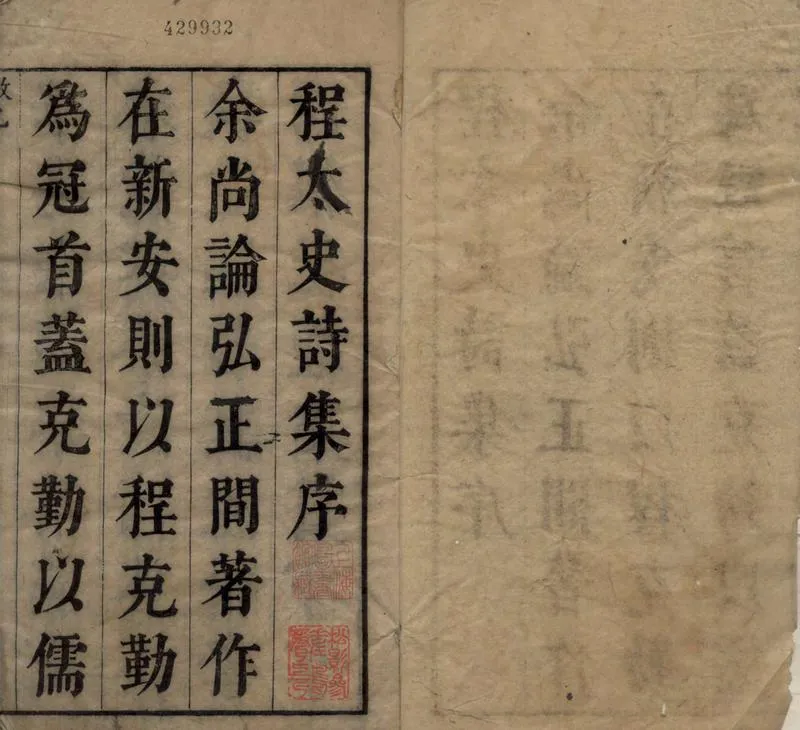 429932
程太史詩集序
余尚論弘正間著作
在新安則以程克勤
為冠首蓋克勤以儒